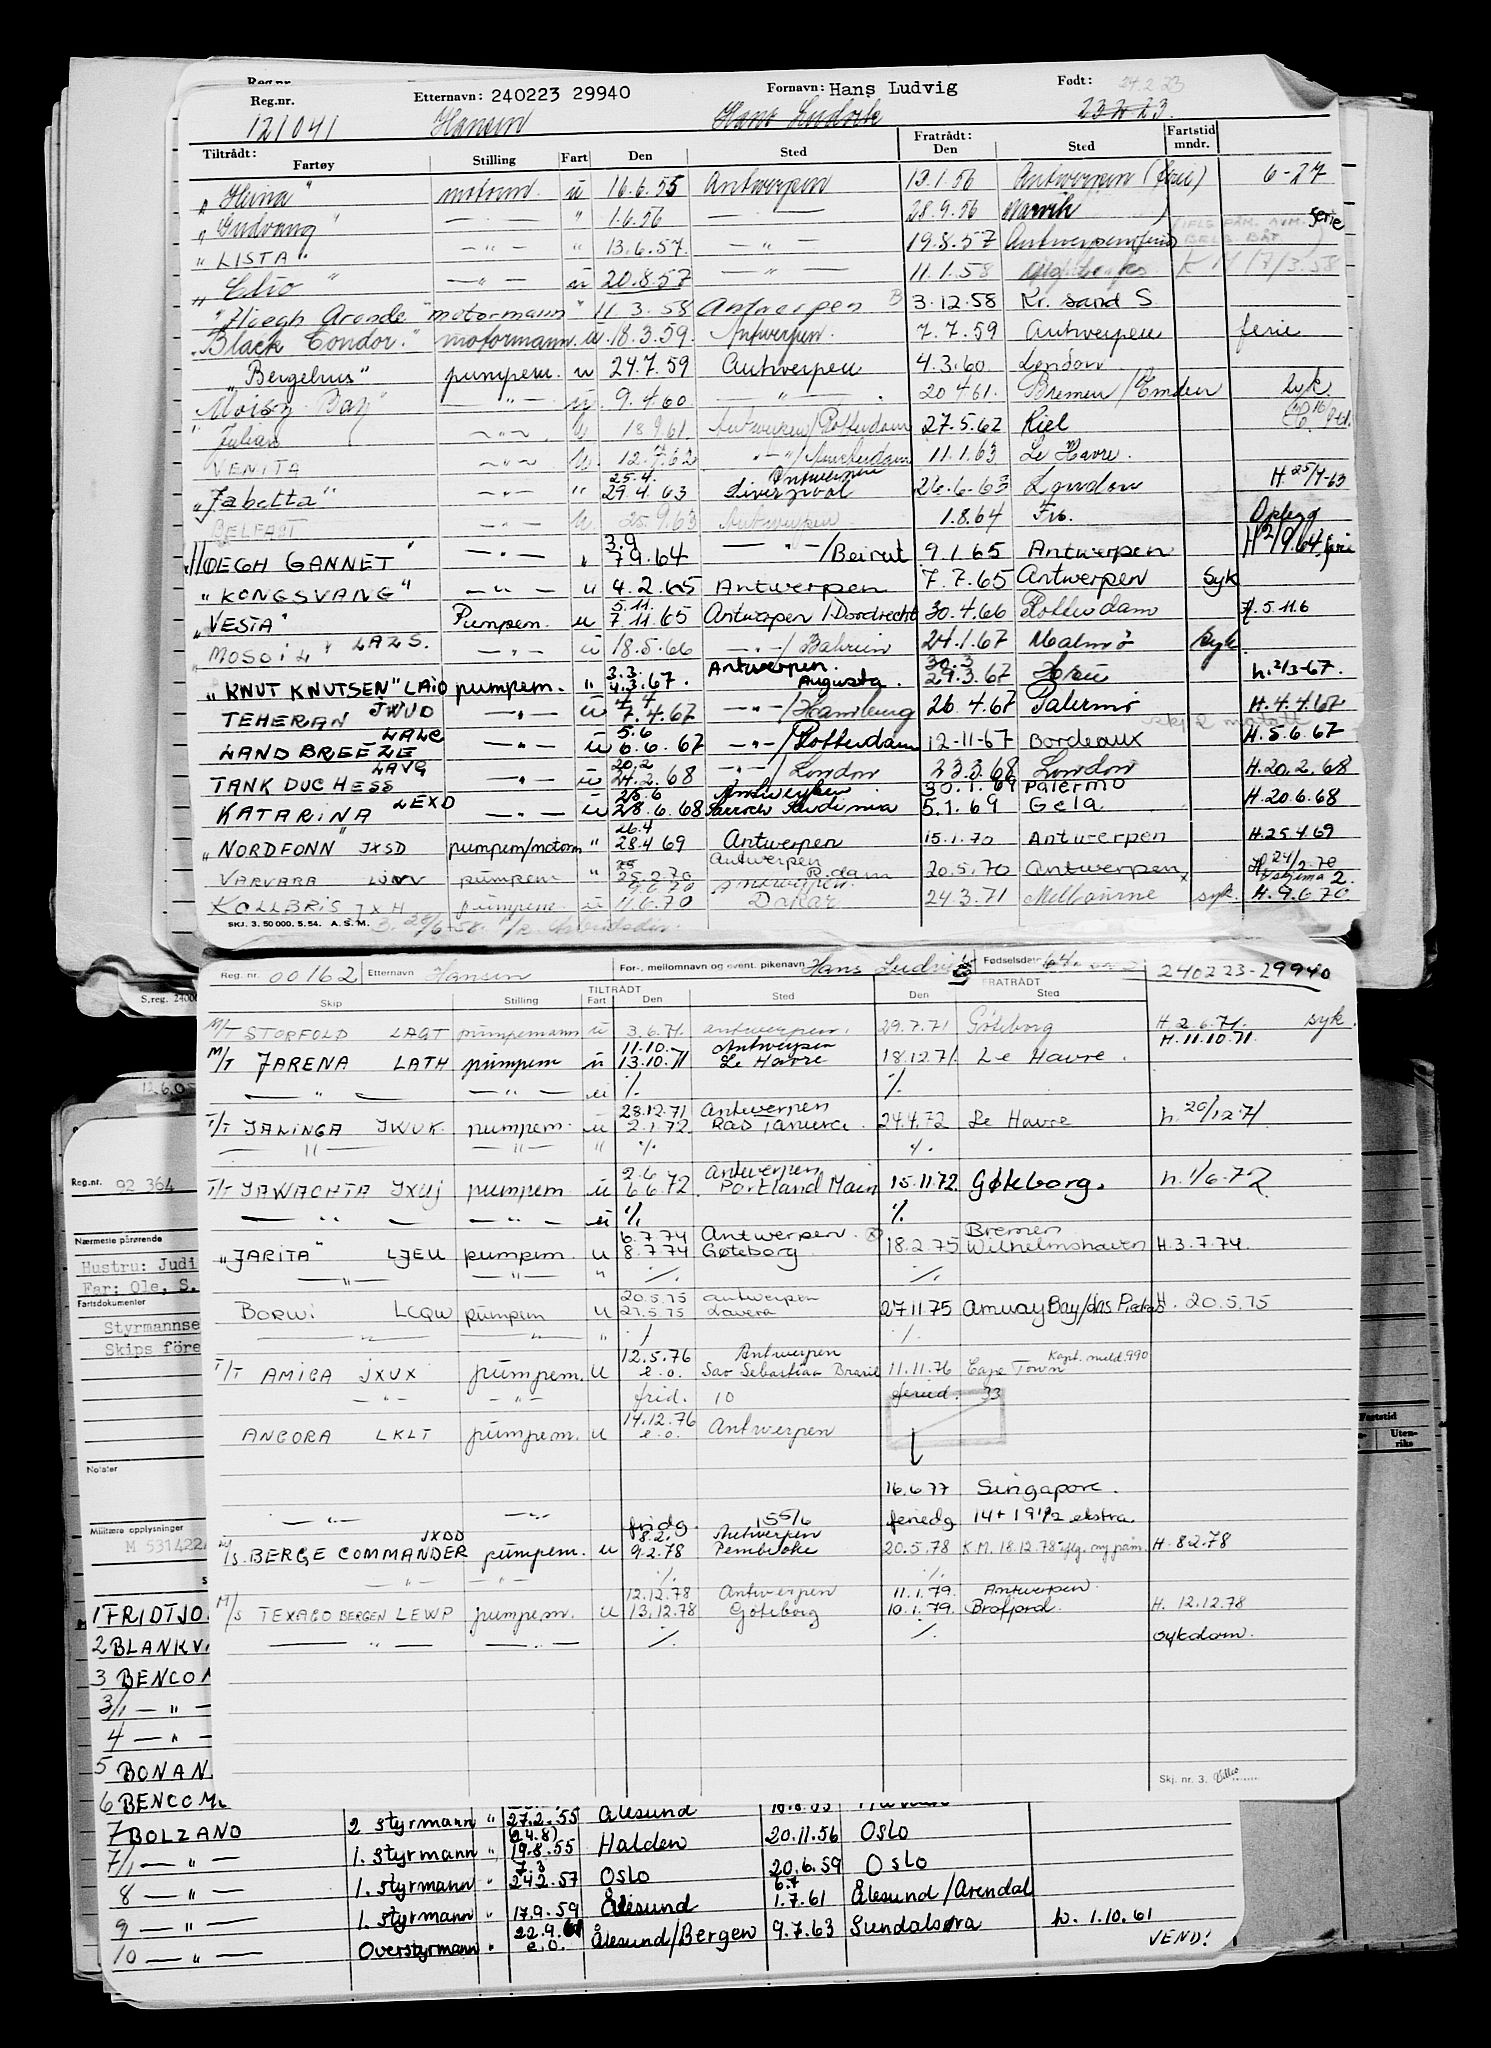 Reg.nr.
Reg.nr. Etternavn: 240223 29940 Fornavn: Hans Ludvig Født: 24.2.23
121041 Hansen Hans Ludvik 23.2.23.
Tiltrådt: Fartøy Stilling Fart Den Sted Fratrådt: Den Sted Fartstid mndr.
"Heina" motorm. u 16.6.55 Antwerpen 13.1.56 Antwerpen (ferie) 6-27
"Gudvang" — · — " 1.6.56 — · — 28.9.56 Narvik ferie
"LISTA" — " — " 13.6.57. — " — 19.8.57 Antwerpen (ferie)
"Clio" — " — u 20.8.57 — " — 11.1.58 K 17/3.58
"Høegh Grande" motormann " 11.3.58 Antwerpen 3.12.58 Kr. sand S.
"Black Condor". motormann. u. 18.3.59. Antwerpen. 7.7.59 Antwerpen ferie
"Bergehus" pumpem. u 24.7.59 Antwerpen 4.3.60 London
Moisy Bay" — " — u. 9.4.60 — " — . 20.4.61. Bremen/Emden syk
"Julian — " — u 18.9.61. Antwerpen/Rotterdam 27.5.62 Kiel
VENITA — " — u. 12.7.62 — " — / Amsterdam 11.1.63 Le Havre.
"Jabetta" — " — " 25.4. 29.4.63 Antwerpen Liverpool 26.6.63 London H. 25/4-63
BELFAST — " — u. 25.9.63 Antwerpen 1.8.64 Fr.st. Opplegg
"HOEGH GANNET" — " — " 3.9 7.9.64 — " — /Beirut 9.1.65 Antwerpen H 2/9.64 ferie
"KONGSVANG" — " — u 4.2.65 Antwerpen 7.7.65 Antwerpen Syk
"VESTA" Pumpem. u 5.11. 7.11.65 Antwerpen/Dordrecht 30.4.66 Rotterdam H. 5.11.6
"MOSOIL" LAZS. — " — u 18.5.66 — " — / Bahrein 24.1.67 Malmø Syk.
"KNUT KNUTSEN" LAIO pumpem. " 3.3. 4.3.67. Antwerpen. Augusta. 30.3 29.3.67 h. 2/3-67.
TEHERAN JWUD — " — u 4.4 7.4.67 — " — /Hamburg 26.4.67 Palermo H. 4.4.67
LAND BREEZE LALC — " — u 5.6 6.6.67 — " — / Rotterdam 12-11-67 Bordeaux H. 5.6.67
TANK DUCHESS LAVG — " — u 20.2 24.2.68 — " — / London 23.3.68 London H. 20.2.68
KATARINA LEXO — " — u 25.6 28.6.68 Antwerpen Sarroch Sardinia 30.1.69 Palermo 5.1.69 Gela H. 20.6.68
"NORDFONN" JXSD pumpem/motorm " 26.4 28.4.69 Antwerpen 15.1.70 Antwerpen H. 25.4.69
VARVARA pumpem " 25 25.2.70 Antwerpen R.dam 20.5.70 Antwerpen H 24/2.70
KOLLBRIS JXH pumpem u 9.6.70 11.6.70 Antwerpen. Dakar 24.3.71 Melbourne syk. H. 9.6.70.
SKJ. 3. 50 000. 5.54. A. S. M.
S.reg. 2400
Reg. nr. 00162 Etternavn Hansen For-, mellomnavn og event. pikenavn Hans Ludvig Fødselsdato 240223-29940
Skip Stilling TILTRÅDT Fart Den Sted FRATRÅDT Den Sted
M/T STORFOLD LAGT pumpemann u 3.6.71. antwerpen. 29.7.71 Göteborg H 2.6.71. syk.
M/T JARENA LATH pumpem u 11.10. 13.10.71 Antwerpen Le Havre 18.12.71. Le Havre. H. 11.10.71.
— " — — " — u % %
T/T JALINGA JWUK. pumpem. u 28.12.71 2.1.72. Antwerpen Ras Tanura. 24.4.72 Le Havre h. 20/12.71
— " — — " — " % %
T/T JAWACHTA JXUJ pumpem u 2.6 6.6.72. Antwerpen Portland Main 15.11.72. Gøteborg. h. 1/6-72
— " — — " — u % %
"JARITA" LJEU pumpem. u 6.7.74 8.7.74 Antwerpen. Gøteborg. 18.2.75 Bremen Wilhelmshaven H. 3.7.74.
— " — — " — " % %
BORWI LCQW pumpem u 20.5.75 21.5.75 antwerpen Lavera 27.11.75 Amuay Bay/das Piedras H. 20.5.75
— " — " " % %
T/T AMICA JXUX pumpem. u 12.5.76 e.o. Antwerpen Sao Sebastiao Brasil 11.11.76 Cape Town Kapt. meld. 990
— " — — " — frid. 10 feried. 33
ANCORA LKLT pumpem. u 14.12.76 e.o. Antwerpen
16.6.77 Singapore.
— " — — " — fridg. 15 5/6 feriedg 14 + 19 1/2 ekstra.
M/S. BERGE COMMANDER JXDD pumpem. u 8.2. 9.2.78 Antwerpen Pembroke 20.5.78 K.M. 18.12.78 H 8.2.78
— " — — " — % %
M/S TEXACO BERGEN LEWP pumpem. u 12.12.78 13.12.78 Antwerpen Göteborg 11.1.79. 10.1.79. Antwerpen. Brofjord. H. 12.12.78
— " — — " — % % sykdom.
Skj. nr. 3.
12.6.05
Reg.nr. 92 364
Nærmeste pårørende
Hustru: Judi
Far: Ole, S.
Fartsdokumenter
Styrmannse
Skips före
Notater
Militære opplysninger
M 531422
Fartstid
Uten-riks
1 FRIDTJO
2 BLANKV
3 BENCOM
3/1 — " —
4 — " —
5 BONAN
6 BENCOM
7 BOLZANO 2 styrmann " 27.2.55 Ålesund
7/1 — " — 1. styrmann " (24.8) 19.8.55 Halden 20.11.56 Oslo
8 — " — 1. styrmann " 7.3 24.2.57 Oslo 20.6.59 Oslo
9 — " — 1. styrmann " 17.9.59 Ålesund 6.7 1.7.61 Ålesund/Arendal
10 — " — Overstyrmann " 22.9.61 e.o. Ålesund/Bergen 9.7.63 Sundalsøra h. 1.10.61
VEND!